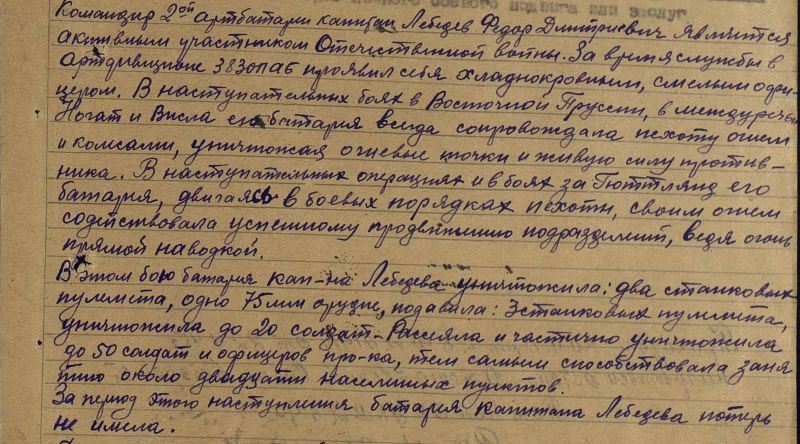 боевого подвига или заслуг
Командир 2ой артбатареи капитан Лебедев Федор Дмитриевич является
активным участником Отечественной войны. За время службы в
артдивизионе 383 опаб проявил себя хладнокровным, смелым офи-
цером. В наступательных боях в Восточной Пруссии, в междуречьи
Ногат и Висла его батарея всегда сопровождала пехоту огнем
и колесами, уничтожая огневые точки и живую силу против-
ника. В наступательных операциях и в боях за Гюттлянд его
батарея, двигаясь в боевых порядках пехоты, своим огнем
содействовала успешному продвижению подразделений, ведя огонь
прямой наводкой.
В этом бою батарея кап-на Лебедева уничтожила: два станковых
пулемета, одно 75мм орудие, подавила: 3 станковых пулемета,
уничтожила до 20 солдат. Рассеяла и частично уничтожила
до 50 солдат и офицеров про-ка, тем самым способствовала заня
тию около двадцати населенных пунктов.
За период этого наступления батарея капитана Лебедева потерь
не имела.